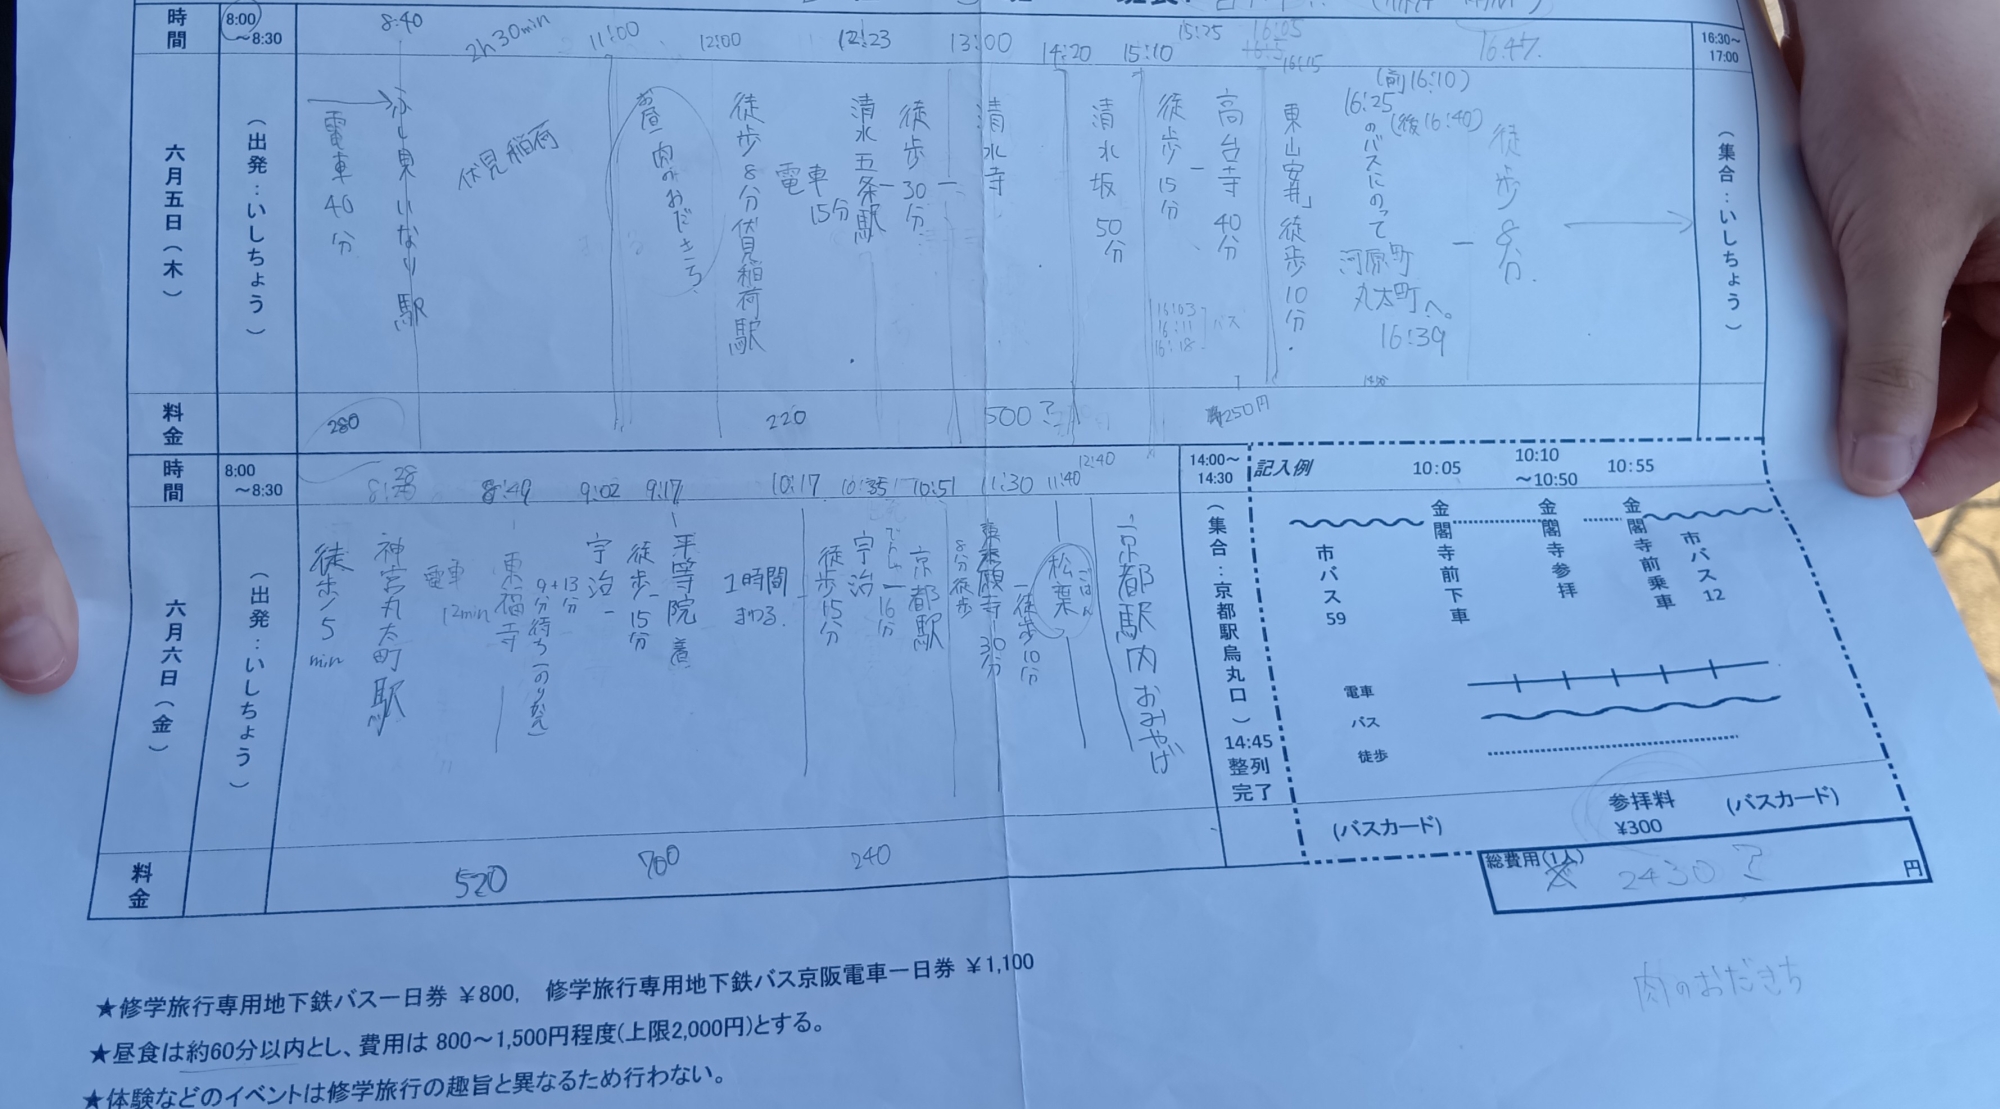 時間
8:00
～8:30
8:40
2h 30min
11:00
12:00
12:23
13:00
14:20
15:10
15:25
16:05
16:15
16:47
16:30～
17:00
六月五日（木）
（出発：いしちょう）
電車40分
ふし見いなり駅
伏見稲荷
お昼 肉のおだきち
徒歩8分伏見稲荷駅
電車
15分
清水五条駅
徒歩30分
清水寺
清水坂50分
徒歩15分
高台寺40分
16:03
16:11
16:18
バス
東山安井
徒歩10分.
(前16:10)
16:25
(後16:40)
のバスにのって
河原町
丸太町へ。
16:39
徒歩8分.
（集合：いしちょう）
料金
280
220
500?
250円
時間
8:00
～8:30
28
8:49
9:02
9:17
10:17
10:35
10:51
11:30
11:40
12:40
14:00～
14:30
六月六日（金）
（出発：いしちょう）
徒歩5min
神宮丸太町駅
電車
12min
東福寺
9+13分
分待ち(のりかえ)
宇治
徒歩15分
平等院着
1時間
まわる.
徒歩15分
宇治
でんしゃ
16分
京都駅
8分徒歩
東本願寺30分
徒歩10分
松葉
ごはん
京都駅内おみやげ
（集合：京都駅烏丸口）
14:45
整列
完了
料金
520
700
240
記入例
10:05
10:10
～10:50
10:55
市バス59
金閣寺前下車
金閣寺参拝
金閣寺前乗車
市バス12
電車
バス
徒歩
(バスカード)
参拝料
¥300
(バスカード)
総費用(1人)
2430?
円
肉のおだきち
★修学旅行専用地下鉄バス一日券 ￥800， 修学旅行専用地下鉄バス京阪電車一日券 ￥1,100
★昼食は約60分以内とし、費用は 800～1,500円程度(上限2,000円)とする。
★体験などのイベントは修学旅行の趣旨と異なるため行わない。